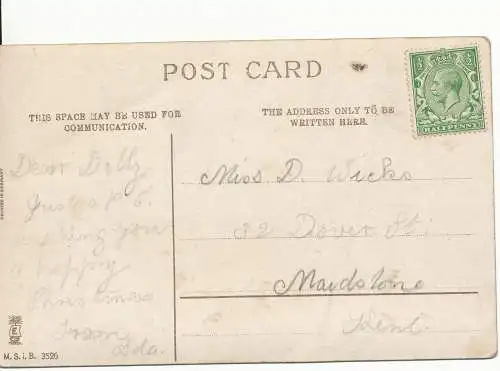 POST CARD
THIS SPACE MAY BE USED FOR
COMMUNICATION.
THE ADDRESS ONLY TO BE
WRITTEN HERE.
HALFPENNY
Dear Dolly
Just a p.c.
wishing you
a happy
Christmas
from
Ida.
Miss D. Wicks
32 Dover St.
Maidstone
Kent.
PRINTED IN GERMANY
E
M. S. i. B. 3526